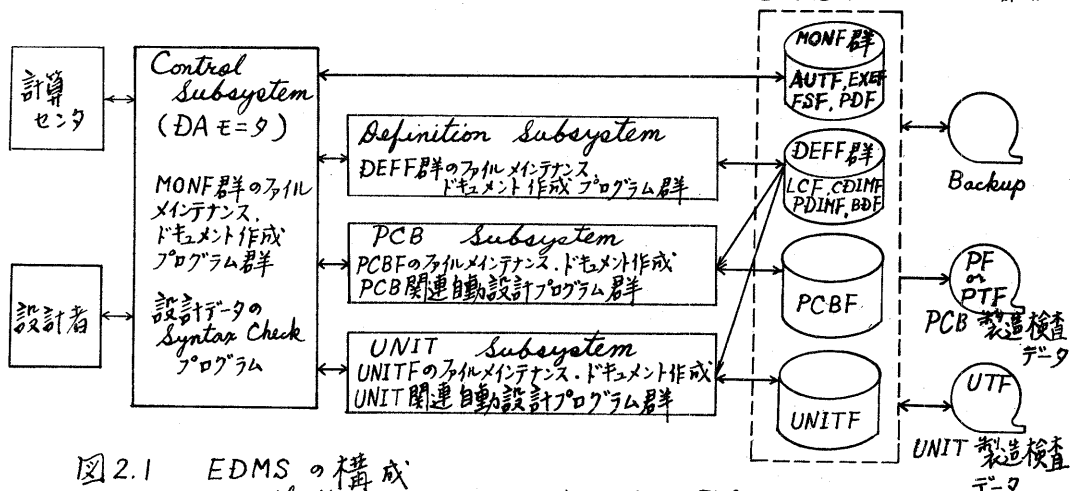 計算
センタ
設計者
Control
Subsystem
(DAモニタ)
MONF群のファイル
メインテナンス.
ドキュメント作成
プログラム群
設計データの
Syntax Check
プログラム
Definition Subsystem
DEFF群のファイルメインテナンス.
ドキュメント作成プログラム群
PCB Subsystem
PCBFのファイルメインテナンス.ドキュメント作成
PCB関連自動設計プログラム群
UNIT Subsystem
UNITFのファイルメインテナンス.ドキュメント作成
UNIT関連自動設計プログラム群
MONF群
AUTF, EXEF
FSF, PDF
DEFF群
LCF, CDIMF
PDIMF, BDF
PCBF
UNITF
Backup
PF
or
PTF
PCB 製造検査
データ
UTF
UNIT 製造検査
データ
図2.1 EDMSの構成